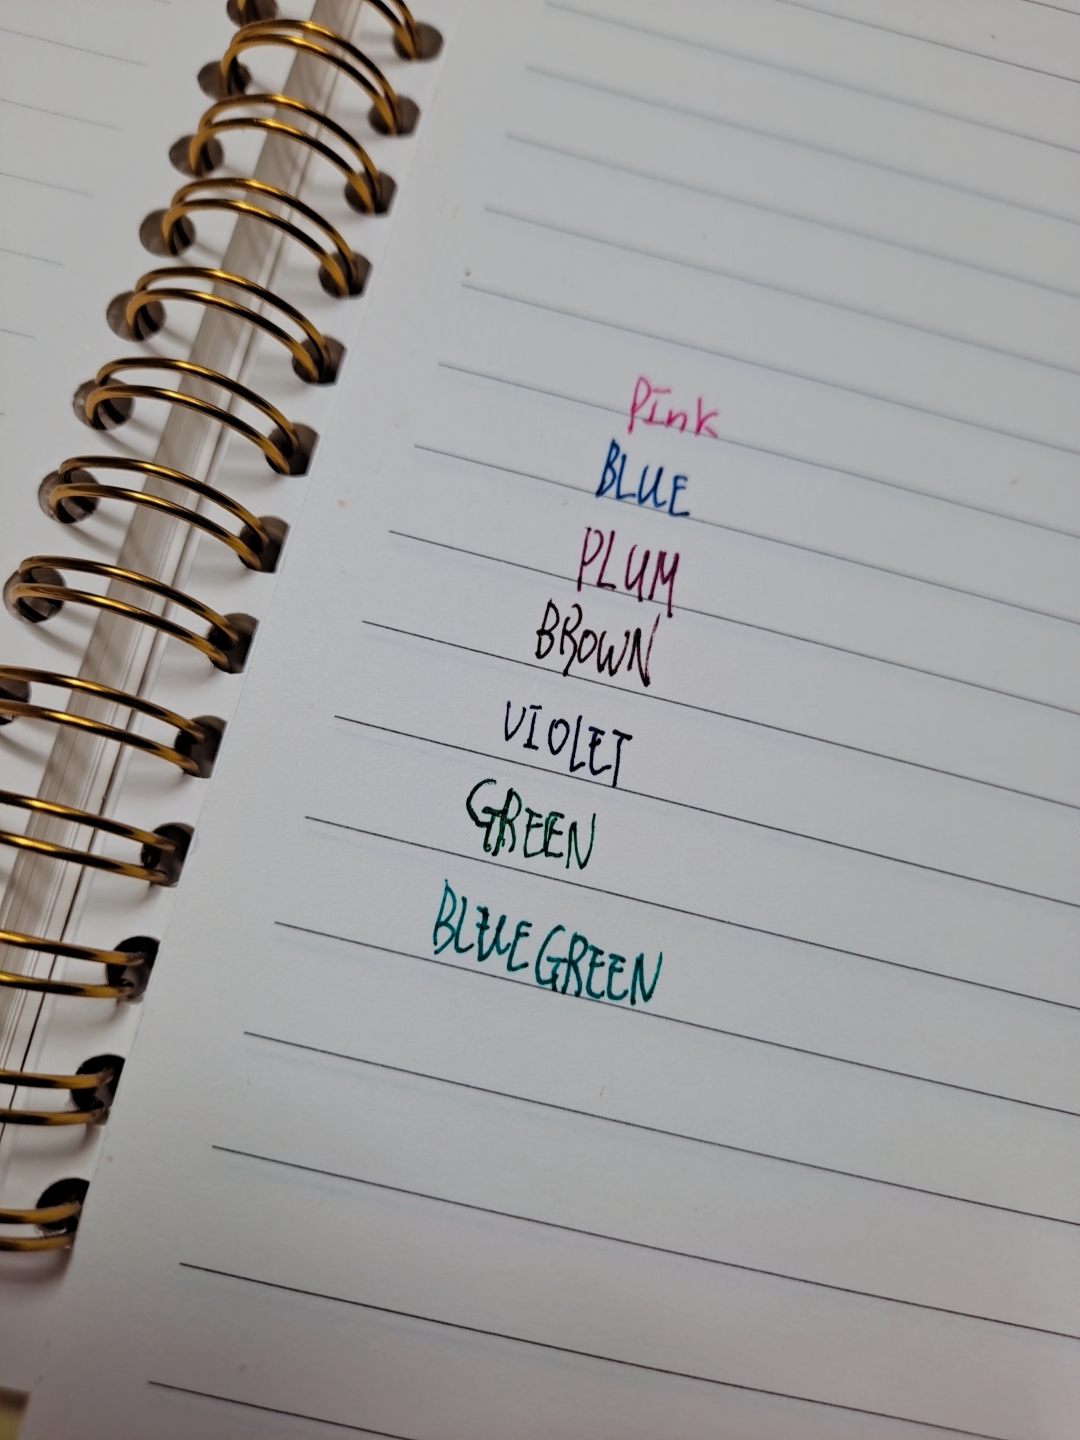 Pink
BLUE
PLUM
BROWN
VIOLET
GREEN
BLUE GREEN